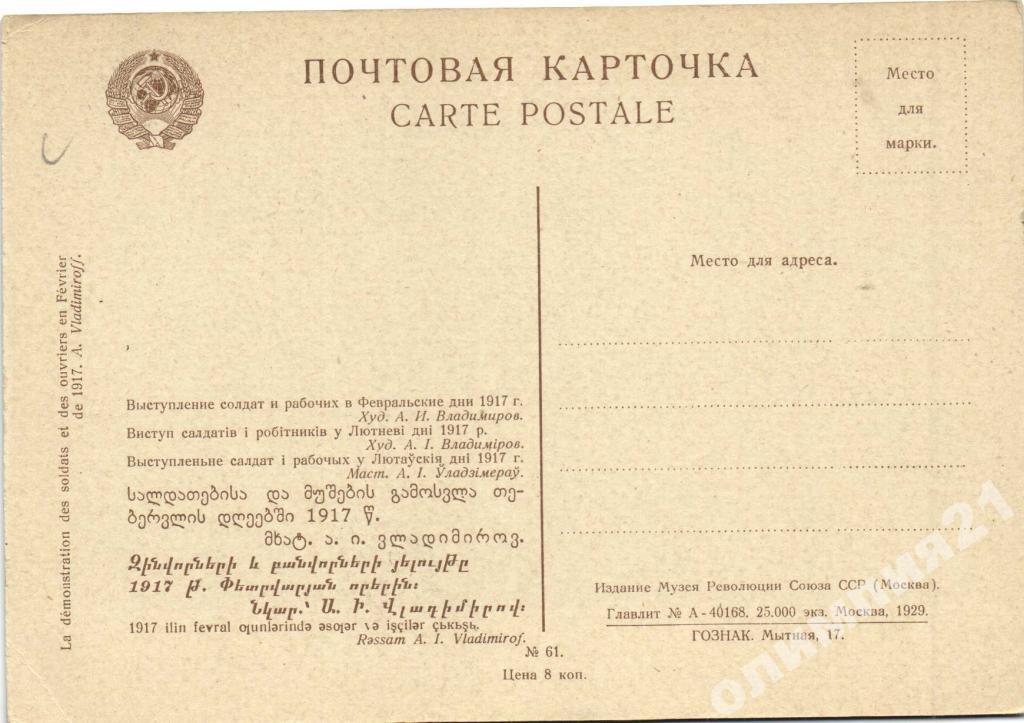 ПОЧТОВАЯ КАРТОЧКА
CARTE POSTALE
Место
для
марки.
La démonstration des soldats et des ouvriers en Février
de 1917. A. Vladimiroff.
Выступление солдат и рабочих в Февральские дни 1917 г.
Худ. А. И. Владимиров.
Виступ салдатів і робітників у Лютневі дні 1917 р.
Худ. А. І. Владіміров.
Выступленьне салдат і рабочых у Лютаўскія дні 1917 г.
Маст. А. І. Ўладзімераў.
სალდათებისა და მუშების გამოსვლა თე-
ბერვლის დღეებში 1917 წ.
მხატ. ა. ი. ვლადიმიროვ.
Զինվորների և բանվորների յելույթը
1917 թ. Փետրվարյան որերին։
Նկար.՝ Ա. Ի. Վլադիմիրով։
1917 ilin fevral ɵƣunlərində əsoļər və işçilər çьkьşь.
Rəssam A. I. Vladimirof.
№ 61.
Цена 8 коп.
Место для адреса.
Издание Музея Революции Союза ССР (Москва).
Главлит № А-40168. 25.000 экз. Москва, 1929.
ГОЗНАК. Мытная, 17.
олимпия21